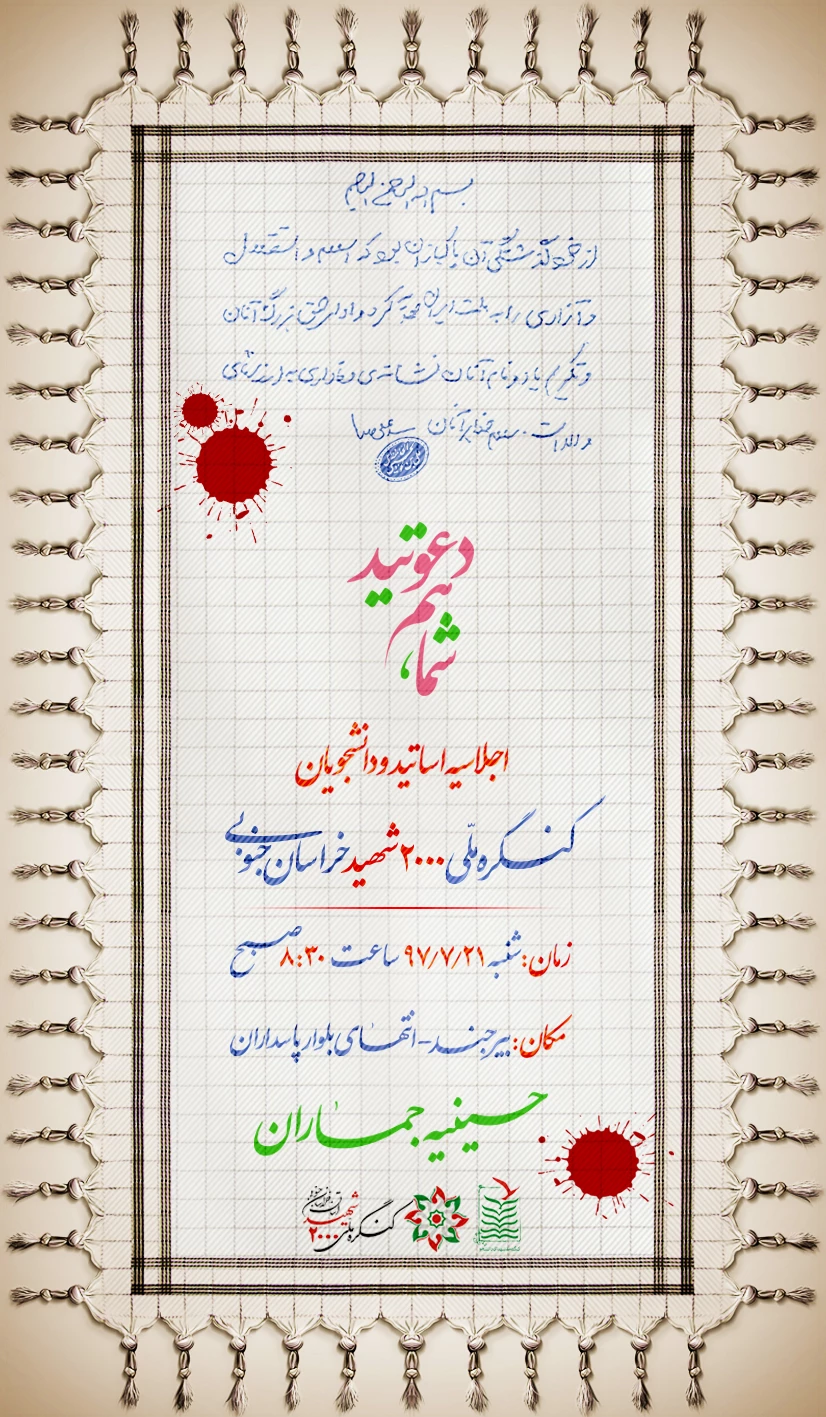 بسم الله الرحمن الرحیم
از خودگذشتگی آن پاکبازان بود که اسلام و استقلال
و آزادی را به ملت ایران هدیه کرد و ادای حق بزرگ آنان
و تکریم یاد و نام آنان نشانه‌ی وفاداری به ارزشهای
والا است. سلام خدا بر آنان
سیدعلی خامنه‌ای
دعوتید
هم
شما،
اجلاسیه اساتید و دانشجویان
کنگره ملّی ۲۰۰۰ شهید خراسان جنوبی
زمان: شنبه ۹۷/۷/۲۱ ساعت ۸:۳۰ صبح
مکان: بیرجند - انتهای بلوار پاسداران
حسینیه جماران
کنگره ملی
۲۰۰۰ شهید
استان خراسان جنوبی